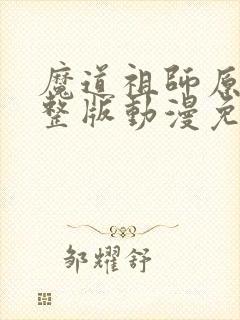 魔道祖師原
整版動漫免
邹耀舒